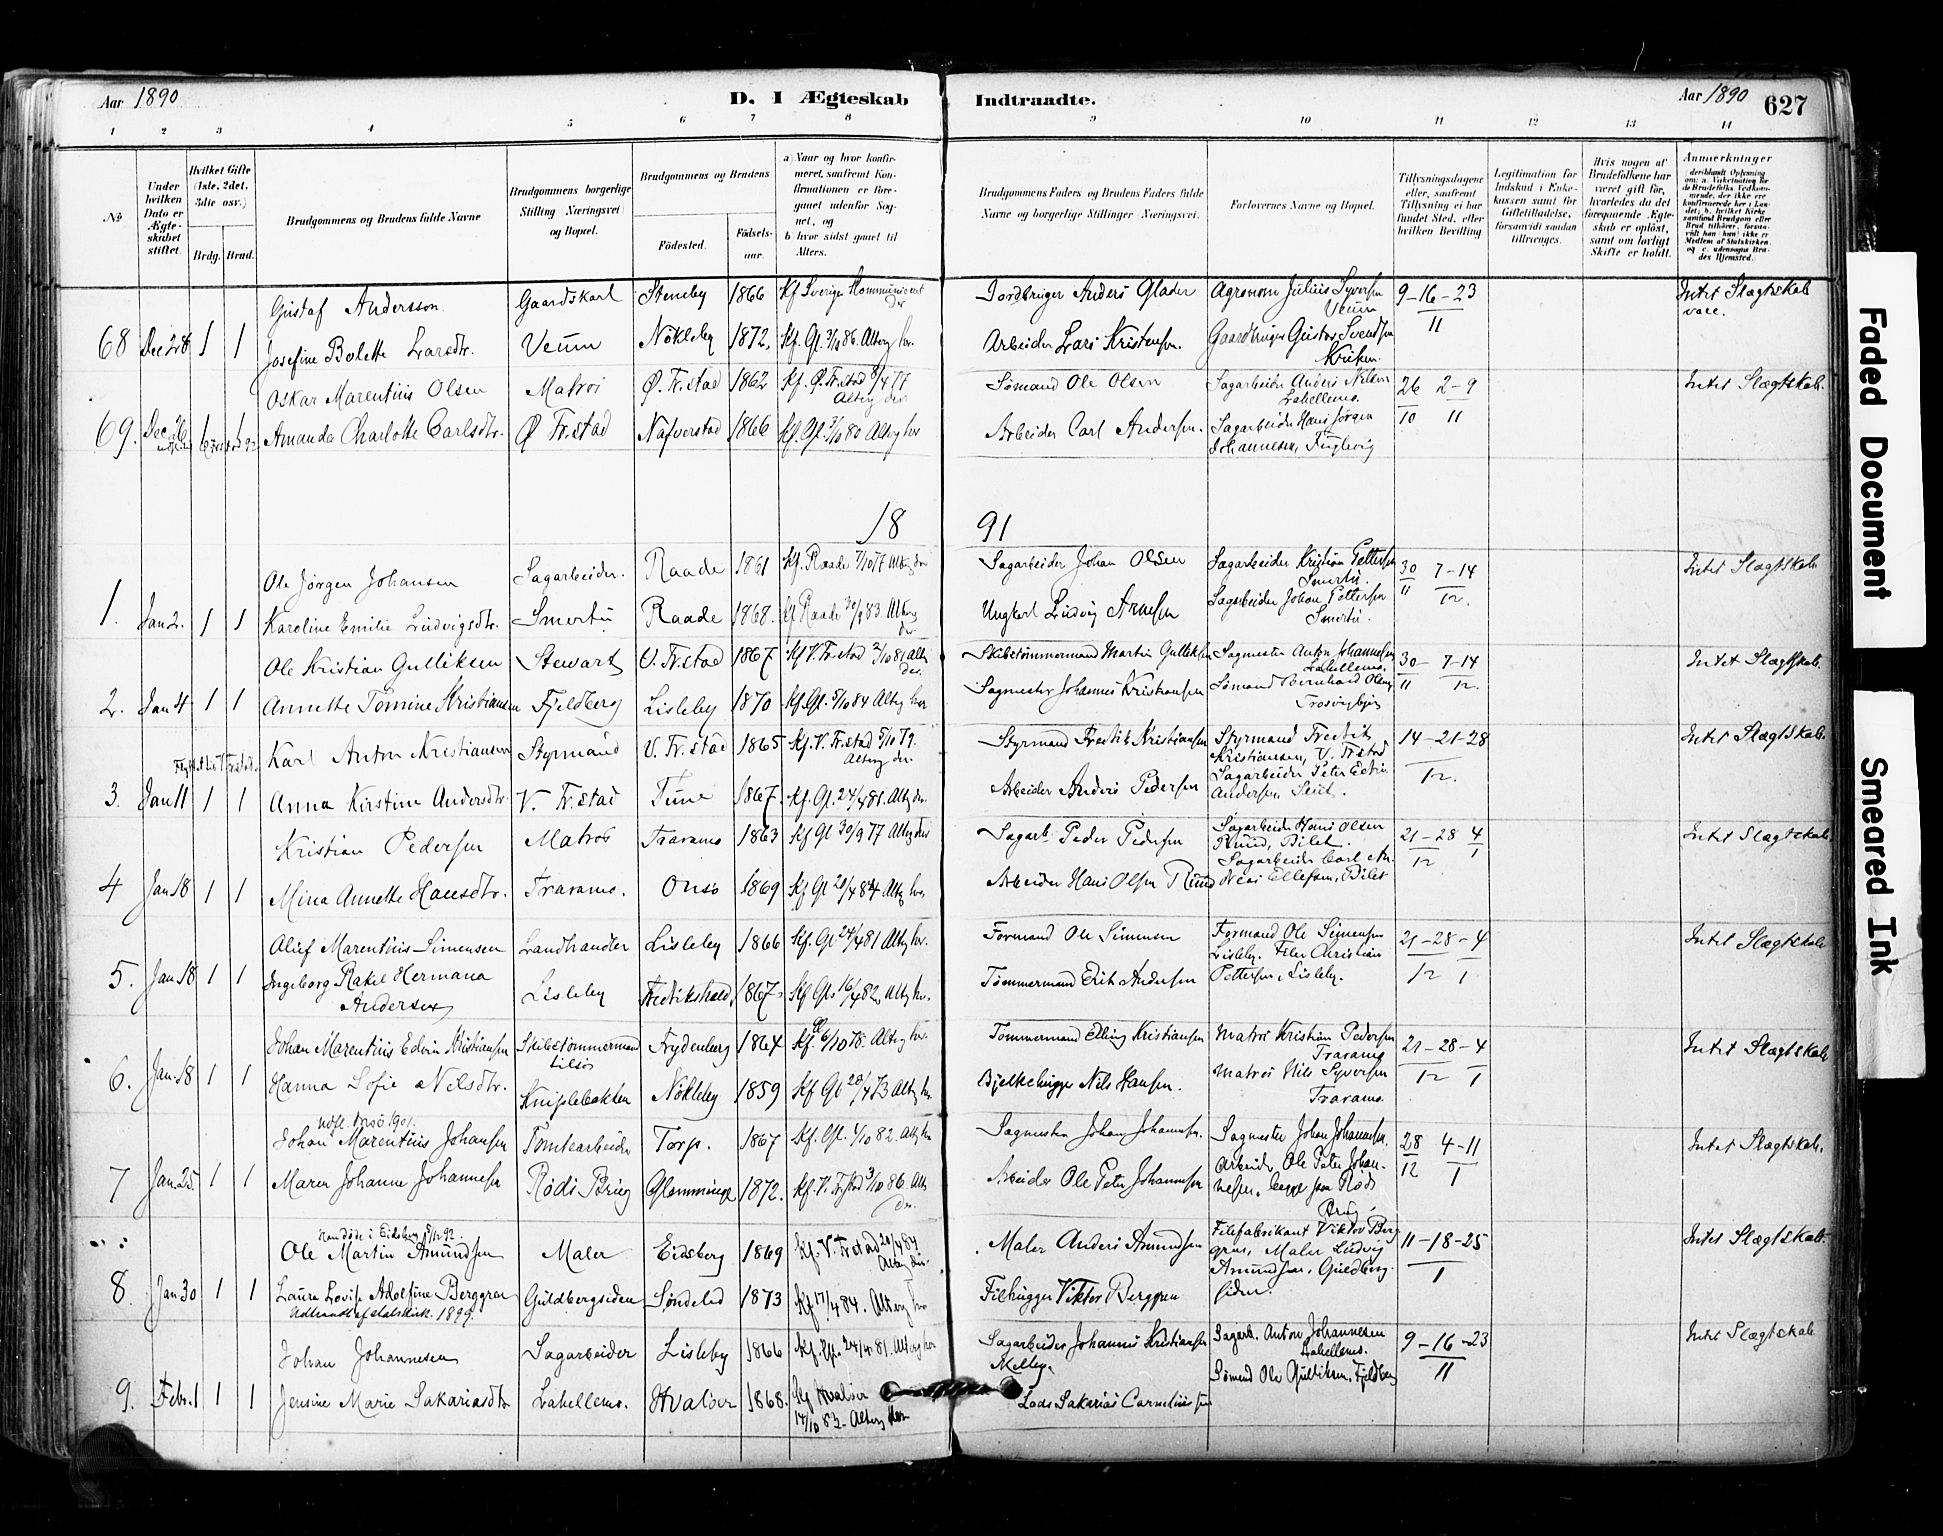 Aar 1890
D. I Ægteskab Indtraadte.
Aar 1890
627
1 2 3 4 5 6 7 8 9 10 11 12 13 14
№
Under hvilken Dato er Ægteskabet stiftet.
Hvilket Gifte (1ste, 2det, 3die osv.)
Brdg. Brud.
Brudgommens og Brudens fulde Navne
Brudgommens borgerlige Stilling (Næringsvei) og Bopæl.
Brudgommens og Brudens
Fødested.
Fødselsaar.
a) Naar og hvor konfirmeret, saafremt Konfirmationen er foregaaet udenfor Sognet, og
b) hvor sidst gaaet til Alters.
Brudgommens Faders og Brudens Faders fulde Navne og borgerlige Stillinger (Næringsvei).
Forlovernes Navne og Bopæl.
Tillysningsdagene eller, saafremt Tillysning ei har fundet Sted, efter hvilken Bevilling
Legitimation for Indskud i Enkekassen samt for Giftetilladelse, forsaavidt saadan tiltrænges.
Hvis nogen af Brudefolkene har været gift før, hvorledes da det foregaaende Ægteskab er opløst, samt om lovligt Skifte er holdt.
Anmerkninger
Gustaf Andersson Gaardskarl Steneby 1866 Kf Sverige Kommuniceret der Jordbruger Anders Glader Agronom Julius Syversen Veum 9-16-23 Intet Slægtskab
68 Dec 28 1 1 Josefine Bolette Larsdtr. Veum Nökleby 1872. Kf. Gl. 3/10 86. Alterg. her. Arbeider Lars Kristensen. Gaardbruger Gustav Svendsen 11
Oskar Marentius Olsen Matros Ø. Fr.stad 1862 Kf. Ø. Fr.stad 8/4 77 Alterg der Sømand Ole Olsen Sagarbeider Anders Nilsen Labellemo. 26 2-9 Intet Slægtskab.
69. Dec 26 Amanda Charlotte Carlsdtr. Ø Fr.stad Nafverstad 1866 Kf. Gl. 3/10 80 Alterg her Arbeider Carl Andersen. Sagarbeider Hans Jørgen Johannesen, Fuglevig 10 11
18 91
Ole Jørgen Johansen Sagarbeider. Raade 1861 Kf. Raade 7/10 77 Alterg der Sagarbeider Johan Olsen Sagarbeider Kristian Pettersen Smertu. 30 7-14 Intet Slægtskab
1. Jan 2. 1 1 Karoline Emilie Ludvigsdtr. Smertu Raade 1868. Kf Raade 30/9 83 Alterg der Ungkarl Ludvig Arnesen Sagarbeider Johan Pettersen Smertu. 11 12.
Ole Kristian Gulliksen Stewart V. Fr.stad 1867 Kf V. Fr.stad 2/10 81 Alterg der. Skibstømmermand Martin Gulliksen Sagmester Anton Johannesen Labellemo. 30- 7-14 Intet Slægtskab.
2. Jan 4 1 1 Annette Tomine Kristiansen Fjeldberg Lisleby 1870 Kf. Gl. 5/10 84 Alterg her Sagmester Johannes Kristiansen Sømand Bernhard Olsen Trosvigbjerg 11 12.
Karl Anton Kristiansen Styrmand V. Fr.stad 1865 Kf. V. Fr.stad 5/10 79. Alterg der. Styrmand Fredrik Kristiansen Styrmand Fredrik Kristiansen, V. Frstad 14-21-28 Intet Slægtskab.
3. Jan 11 1 1 Anna Kirstine Andersdtr. V. Fr.stad Tune 1867. Kf. Gl. 24/4 81. Alterg der. Arbeider Anders Pedersen Sagarbeider Peter Edvin Andersen 12.
Kristian Pedersen Matros Traramo 1863 Kf Gl 30/9 77 Alterg her Sagarb. Peder Pedersen Sagarbeider Hans Olsen Rund, Bilet. 21-28 4 Intet Slægtskab
4 Jan 18 1 1 Mina Annette Hansdtr. Traramo. Onsø 1869 Kf Gl 20/4 84 Alterg her. Arbeider Hans Olsen Rund Sagarbeider Carl Andreas Ellefsen, Bilet 12 1
Oluf Marentius Simensen Landhandler Lisleby 1866 Kf. Gl 24/4 81 Alterg her. Formand Ole Simensen Formand Ole Simensen Lisleby. Filer Christian 21-28-4 Intet Slægtskab
5. Jan 18 1 1 Ingeborg Rakel Hermana Andersen Lisleby Fredrikstad. 1867. Kf Gl. 16/4 82, Alterg her. Tømmermand Erik Andersen Pettersen, Lisleby. 12 1
Johan Marentius Edvin Kristiansen Skibstømmermand Lilös Frydenberg 1864 Kf. Gl 6/10 78. Alterg her. Tømmermand Elling Kristiansen Matros Kristian Pedersen Traramo 21-28-4 Intet Slægtskab
6. Jan 18 1 1 Hanna Sofie Nilsdtr. Kniplebakken Nökleby 1859 Kf Gl 20/4 73 Alterg her Bjelkehugger Nils Hansen. Matros Nils Syversen Traramo. 12 1
Udfl. Onsø 1901.
Johan Marentius Johansen Tomtearbeider Torp. 1867 Kf. Gl. 1/10 82. Alterg her Sagmester Johan Johannesen. Sagmester Johan Johannesen, 28 4-11 Intet Slægtskab.
7 Jan 25 1 1 Maren Johanne Johannesen Røds Brug Glemminge 1872. Kf. V. Fr.stad 3/10 86. Alterg der. Arbeider Ole Peter Johannesen Arbeider Ole Peter Johannesen, begge paa Røds Brug. 12 1
Han døde i Eidsberg 5/12 92.
Ole Martin Amundsen Maler Eidsberg 1869 Kf. V. Fr.stad 20/4 84. Alterg der. Maler Anders Amundsen Filefabrikant Viktor Berggren, Maler Ludvig 11-18-25 Intet Slægtskab.
8. Jan 30 1 1 Laura Lovise Adolfine Berggren Guldbergsiden Søndeled 1873 Kf 17/4 84. Alterg her Filhugger Viktor Berggren Amundsen, Guldbergsiden. 1
Udtraadt af statskirk. 1899.
Johan Johannesen Sagarbeider Lisleby 1866 Kf. Gl. 24/4 81. Alterg her Sagarbeider Johannes Kristiansen Sagarb. Anton Johannesen Labellemo. 9-16-23 Intet Slægtskab
9. Febr. 1 1 1 Jensine Marie Sakariasdtr Labellemo. Hvaløer 1868. Kf Hvaløer 14/10 83. Alterg her Lods Sakarias Cornelius sen Sømand Ole Gulliksen, Fjeldberg 11
Faded Document
Smeared Ink